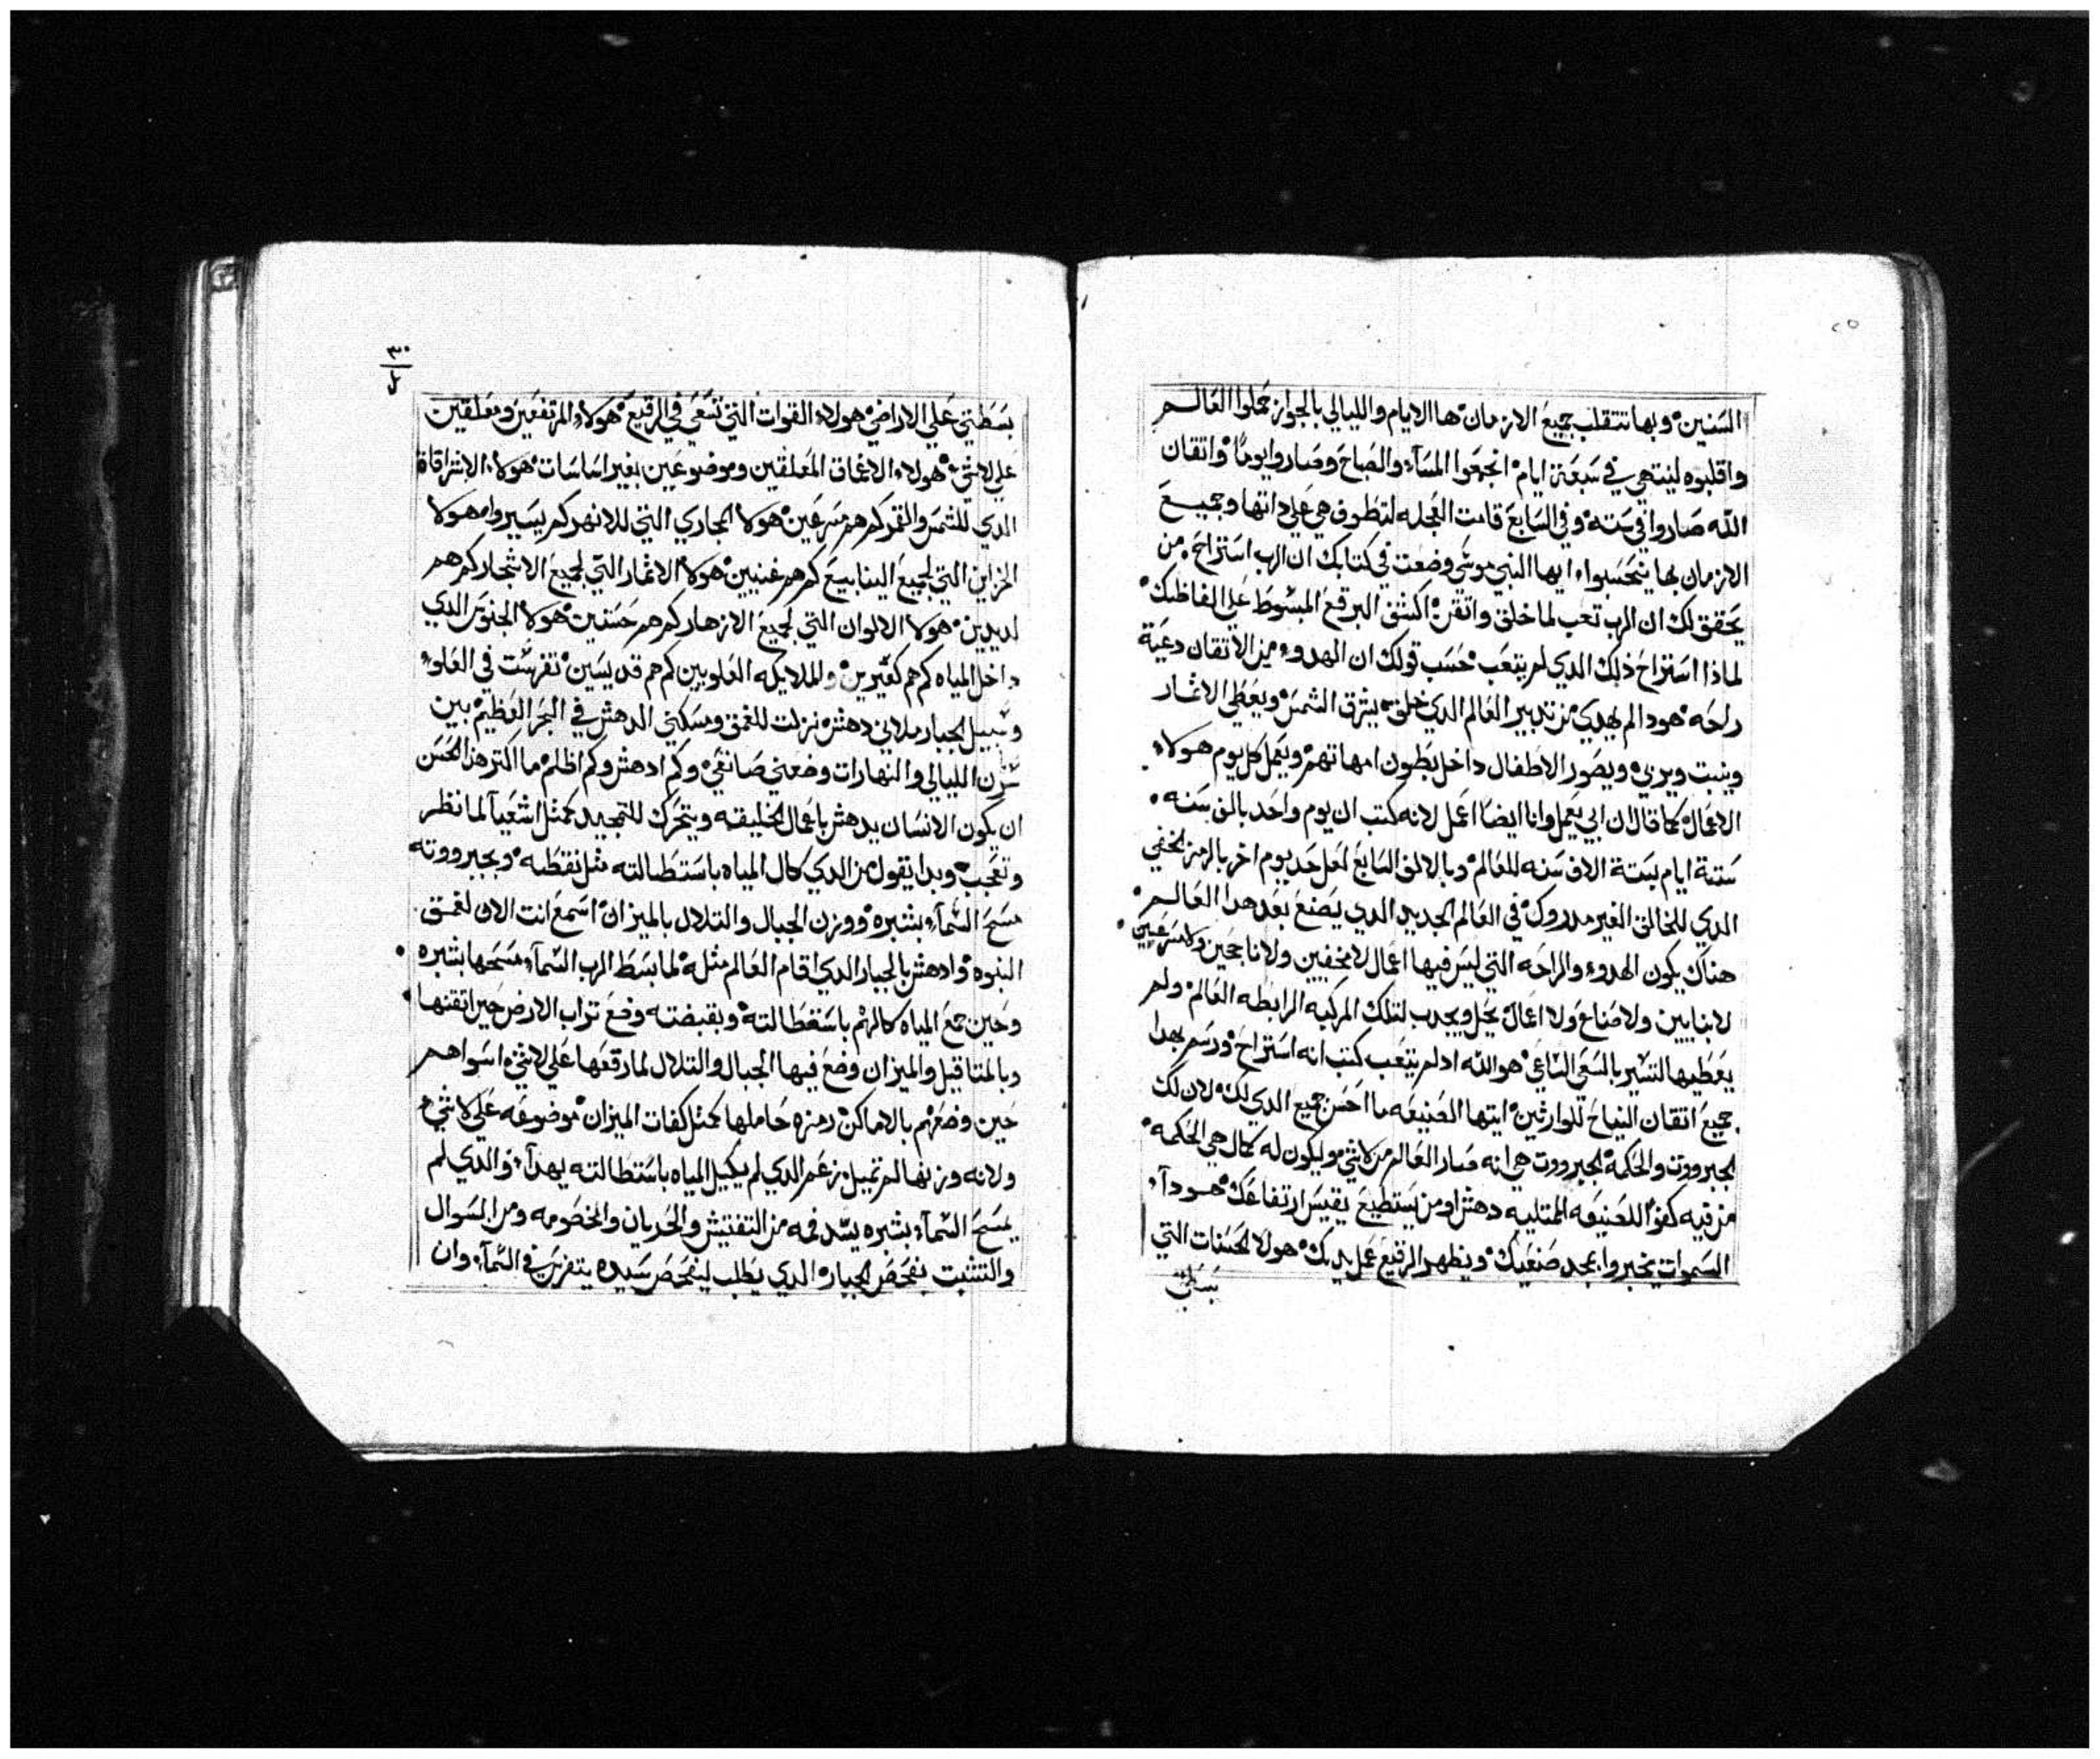 ٢٥
السنين وبها تتقلب جميع الازمان ها الايام والليالي بالجواز حملوا العالم
واقلبوه لينتهي في سبعة ايام انجمعوا المسآء والصباح وصاروا يوماً واتقان
الله صاروا في ستة وفي السابع قامت العجله لتطوف هي علي داتها وجميع
الازمان بها يتحسبوا ايها النبي موسي وضعت في كتابك ان الرب استراح من
يحقق لك ان الرب تعب لما خلق واتقن اكشف البرقع المبسوط علي الفاظك
لماذا استراح ذلك الدي لم يتعب حسب قولك ان الهدوء من الاتقان دعية
راحه هودا لم يهدي من تدبير العالم الدي خلق يشرق الشمس ويعطي الاثمار
وينبت ويربي ويصور الاطفال داخل بطون امهاتهم ويعمل كل يوم هولاء
الاعمال كما قال ان ابي يعمل وانا ايضا اعمل لانه كتب ان يوم واحد بالف سنه
ستة ايام بستة الاف سنه للعالم وبالالف السابع لعل حد يوم اخر بالرمز لخفي
الدي للخالق الغير مدروك في العالم الجديد الدي يصنع بعد هدا العالم
هناك يكون الهدوء والراحه التي ليس فيها اعمال لا مخفيين ولا ناجحين ولا مسرعين
لا بنايين ولا صناع ولا اعمال يحل ويجدب لتلك المركبه الرابطه العالم ولم
يعطيها التسير بالسعي الساعي هو الله اد لم يتعب كتب انه استراح ورسم بهدا
جميع اتقان النياح للوارثين ايتها الصنيعه ما احسن جميع الدي لك لان لك
الجبرووت والحكمة الجبرووت هي انه صار العالم من لاشي موليكون له كمال هي الحكمه
من فيه كفوا للصنيعه الممتليه دهش او من يستطيع يقيس ارتفاعك هودآ
السموات يخبروا بمجد صنعيك ويظهر الرقيع عمل يديك هولا الحسنات التي
بسطتي
٣٠
بسطتي علي الاراضي هولاء القوات التي تسعي في الرقيع هولاء المرتفعين ومعلقين
علي لاشي هولاء الاعماق المعلقين وموضوعين بغير اساسات هولاء الاشراقاة
الدي للشمس والقمر كم هم مسرعين هولا المجاري التي للانهر كم يسيروا هولا
الخزاين التي لجميع الينابيع كم هم غنيين هولا الاثمار التي لجميع الاشجار كم هم
لديدين هولا الالوان التي لجميع الازهار كم هم حسنين هولا الجنوس الدي
داخل المياه كم هم كثيرين والملايكه العلويين كم هم قديسين تفرست في العلوء
وسبيل الجبار ملاني دهش نزلت للغمق ومسكني الدهش في البحر العظيم بين
الليالي والنهارات وضعني صانعي وكم ادهش وكم اظلم ما اكتر هدا الحسن
ان يكون الانسان يدهش باعمال الخليقه ويتحرك للتمجيد كمثل اشعيآ لما نظر
وتعجب وبدا يقول من الدي كال المياه باستطالته مثل نقطه وبجبرووته
مسح السمآء بشبره ووزن الجبال والتلال بالميزان اسمع انت الان لغمق
النبوه وادهش بالجبار الدي اقام العالم مثله لما بسط الرب السمآء مسحها بشبره
وحين جمع المياه كالهم باستطالته وبقبضته وضع تراب الارض حين اتقنها
وبالمتاقيل والميزان وضع فيها الجبال والتلال لما رقعها علي لاشي اسواهم
حين وضعهم بالاماكن رمزه حاملها كمثل كفات الميزان موضوعه علي لاشي
ولانه وزنها لم تميل زعم الدي لم يكيل المياه باستطالته يهدآ والدي لم
يمسح السمآء بشبره يسد فمه من التفتيش والخصومه ومن السوال
والتثبت بفحص الجبار الدي يطلب ليفحص سيده يتفرس في السمآء وان